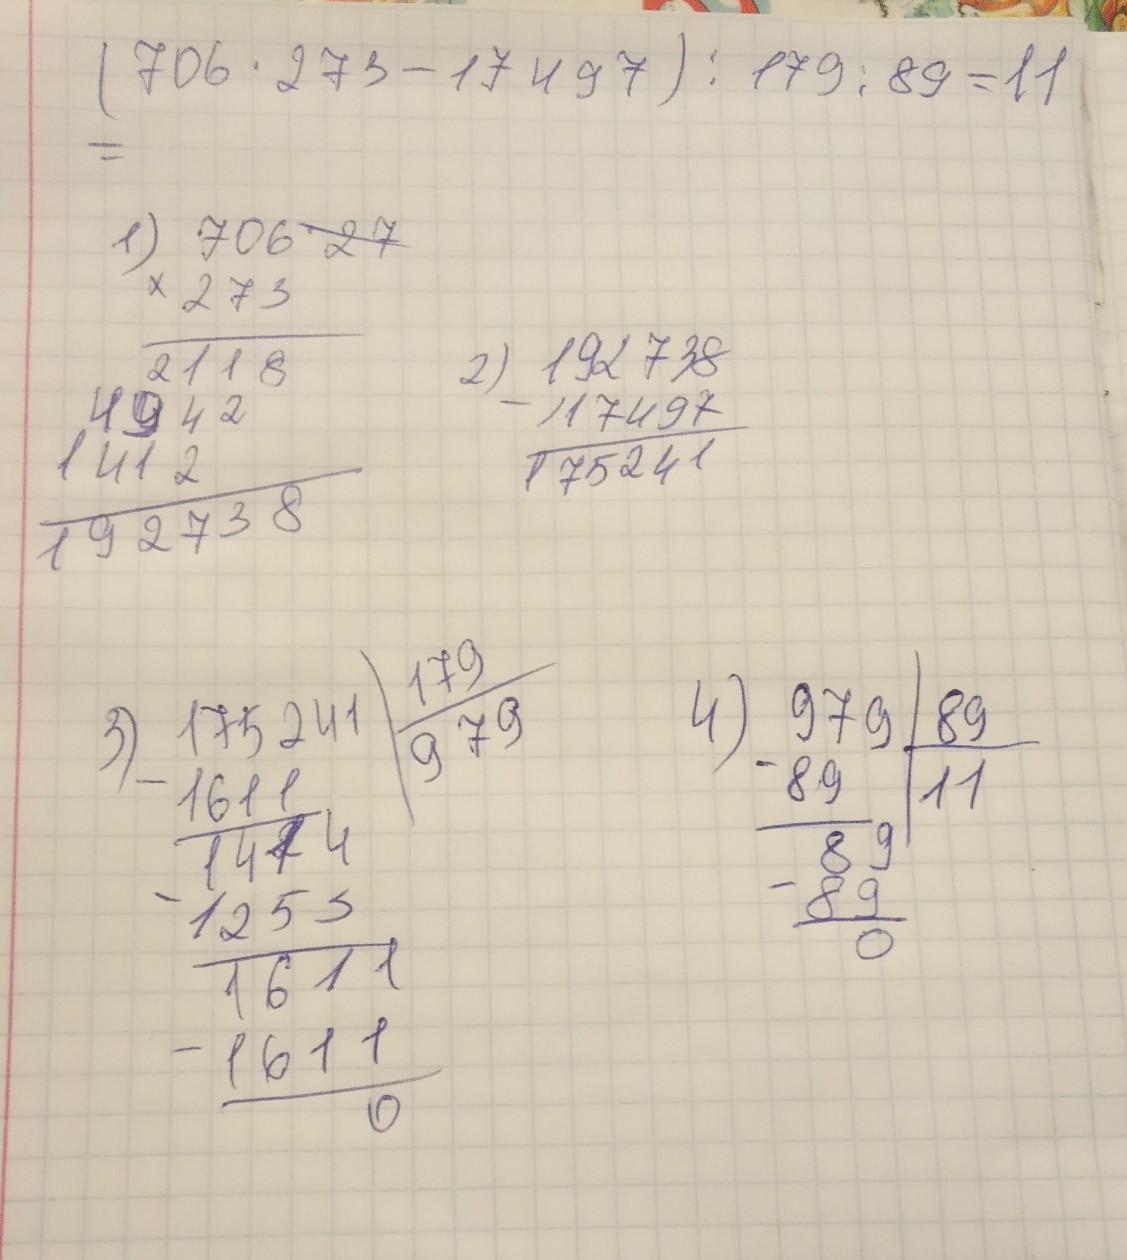 (706 · 273 - 17497) : 179 : 89 = 11
=
1) 706 · 27
× 273
2118
4942
1412
192738
2) 192738
- 17497
175241
3) 175241 | 179
- 1611 | 979
1424
- 1253
1611
- 1611
0
4) 979 | 89
- 89 | 11
89
- 89
0